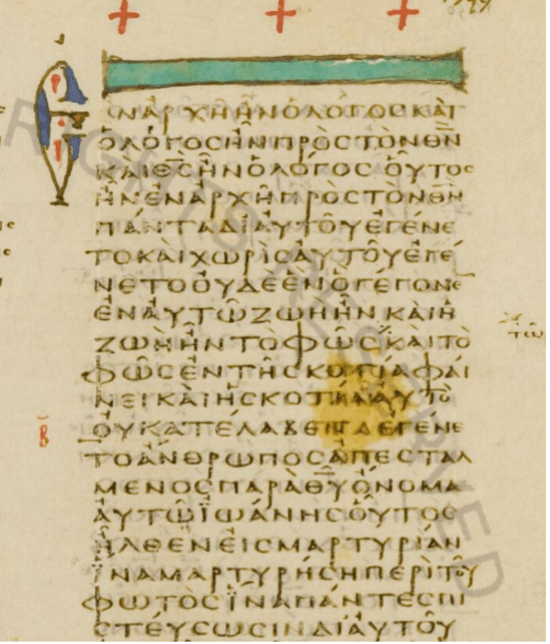 ΕΝΑΡΧΗΗΝΟΛΟΓΟϹΚΑΙ
ΟΛΟΓΟϹΗΝΠΡΟϹΤΟΝΘ̅Ν̅
ΚΑΙΘ̅Ϲ̅ΗΝΟΛΟΓΟϹΟΥΤΟϹ
ΗΝΕΝΑΡΧΗΠΡΟϹΤΟΝΘ̅Ν̅
ΠΑΝΤΑΔΙΑΥΤΟΥΕΓΕΝΕ
ΤΟΚΑΙΧΩΡΙϹΑΥΤΟΥΕΓΕ
ΝΕΤΟΟΥΔΕΕΝΟΓΕΓΟΝΕ̅
ΕΝΑΥΤΩΖΩΗΗΝΚΑΙΗ
ΖΩΗΗΝΤΟΦΩϹΚΑΙΤΟ
ΦΩϹΕΝΤΗϹΚΟΤΙΑΦΑΙ
ΝΕΙΚΑΙΗϹΚΟΤΙΑΑΥΤΟ
Β̅
ΟΥΚΑΤΕΛΑΒΕΝΕΓΕΝΕ
ΤΟΑΝΘΡΩΠΟϹΑΠΕϹΤΑΛ
ΜΕΝΟϹΠΑΡΑΘ̅Υ̅ΟΝΟΜΑ
ΑΥΤΩΪΩΑΝΗϹΟΥΤΟϹ
ΗΛΘΕΝΕΙϹΜΑΡΤΥΡΙΑΝ
ΪΝΑΜΑΡΤΥΡΗϹΗΠΕΡΙΤΟΥ
ΦΩΤΟϹΪΝΑΠΑΝΤΕϹΠΙ
ϹΤΕΥϹΩϹΙΝΔΙΑΥΤΟΥ
RIGHTS RESERVED